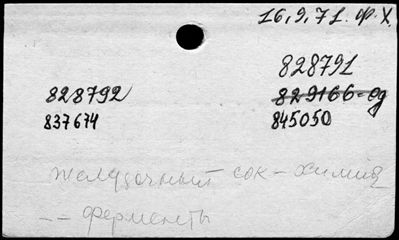 16,9,71. ф.X
828791
828792 829166-од
837674 845050
Желудочный сок - химия
-- ферменты